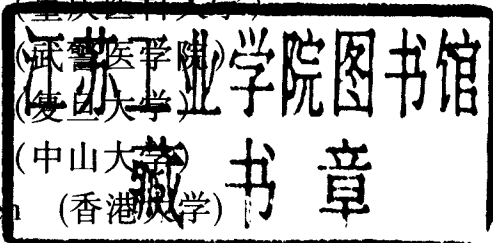 (重庆医科大学)
(武警医学院)
(复旦大学)
(中山大学)
(香港大学)
江苏工业学院图书馆
藏书章